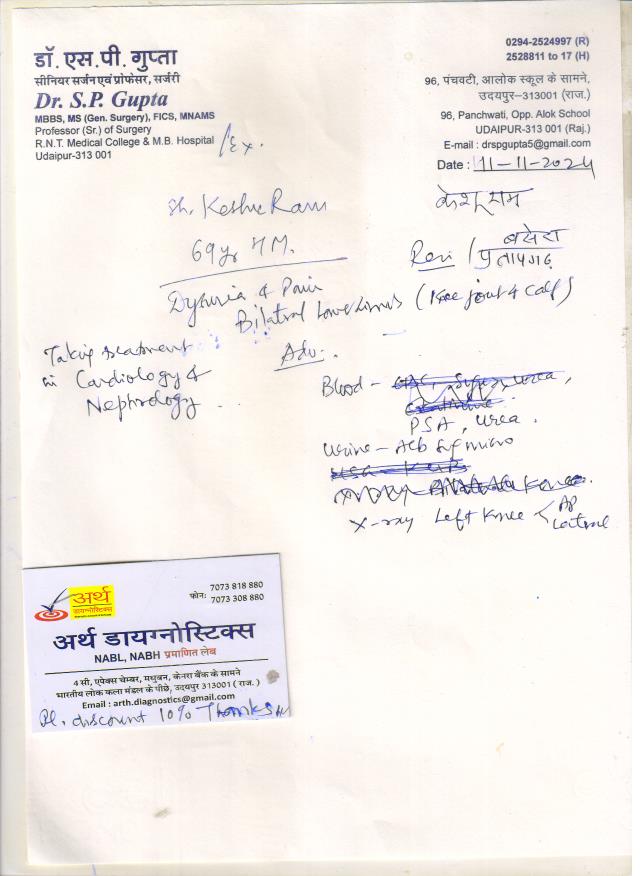 डॉ. एस.पी. गुप्ता
सीनियर सर्जन एवं प्रोफेसर, सर्जरी
Dr. S.P. Gupta
MBBS, MS (Gen. Surgery), FICS, MNAMS
Professor (Sr.) of Surgery
R.N.T. Medical College & M.B. Hospital /Ex.
Udaipur-313 001
0294-2524997 (R)
2528811 to 17 (H)
96, पंचवटी, आलोक स्कूल के सामने,
उदयपुर–313001 (राज.)
96, Panchwati, Opp. Alok School
UDAIPUR-313 001 (Raj.)
E-mail : drspgupta5@gmail.com
Date : 11-11-2024
Sh. Keshu Ram
केशूराम
69yr M.
बसेरा
प्रतापगढ़
Dysuria & Pain
Bilateral Lower Limbs (Knee joint & calf)
Taking treatment
in Cardiology &
Nephrology
Adv:
Blood -
PSA, Urea.
Urine – Alb Suf micro
X-ray Left Knee < AP
Lateral
अर्थ
डायग्नोस्टिक्स
फोन: 7073 818 880
7073 308 880
अर्थ डायग्नोस्टिक्स
NABL, NABH प्रमाणित लेब
4 सी, एपेक्स चेम्बर, मधुबन, केनरा बैंक के सामने
भारतीय लोक कला मंडल के पीछे, उदयपुर 313001 ( राज. )
Email : arth.diagnostics@gmail.com
Pl. discount 10% Thanks